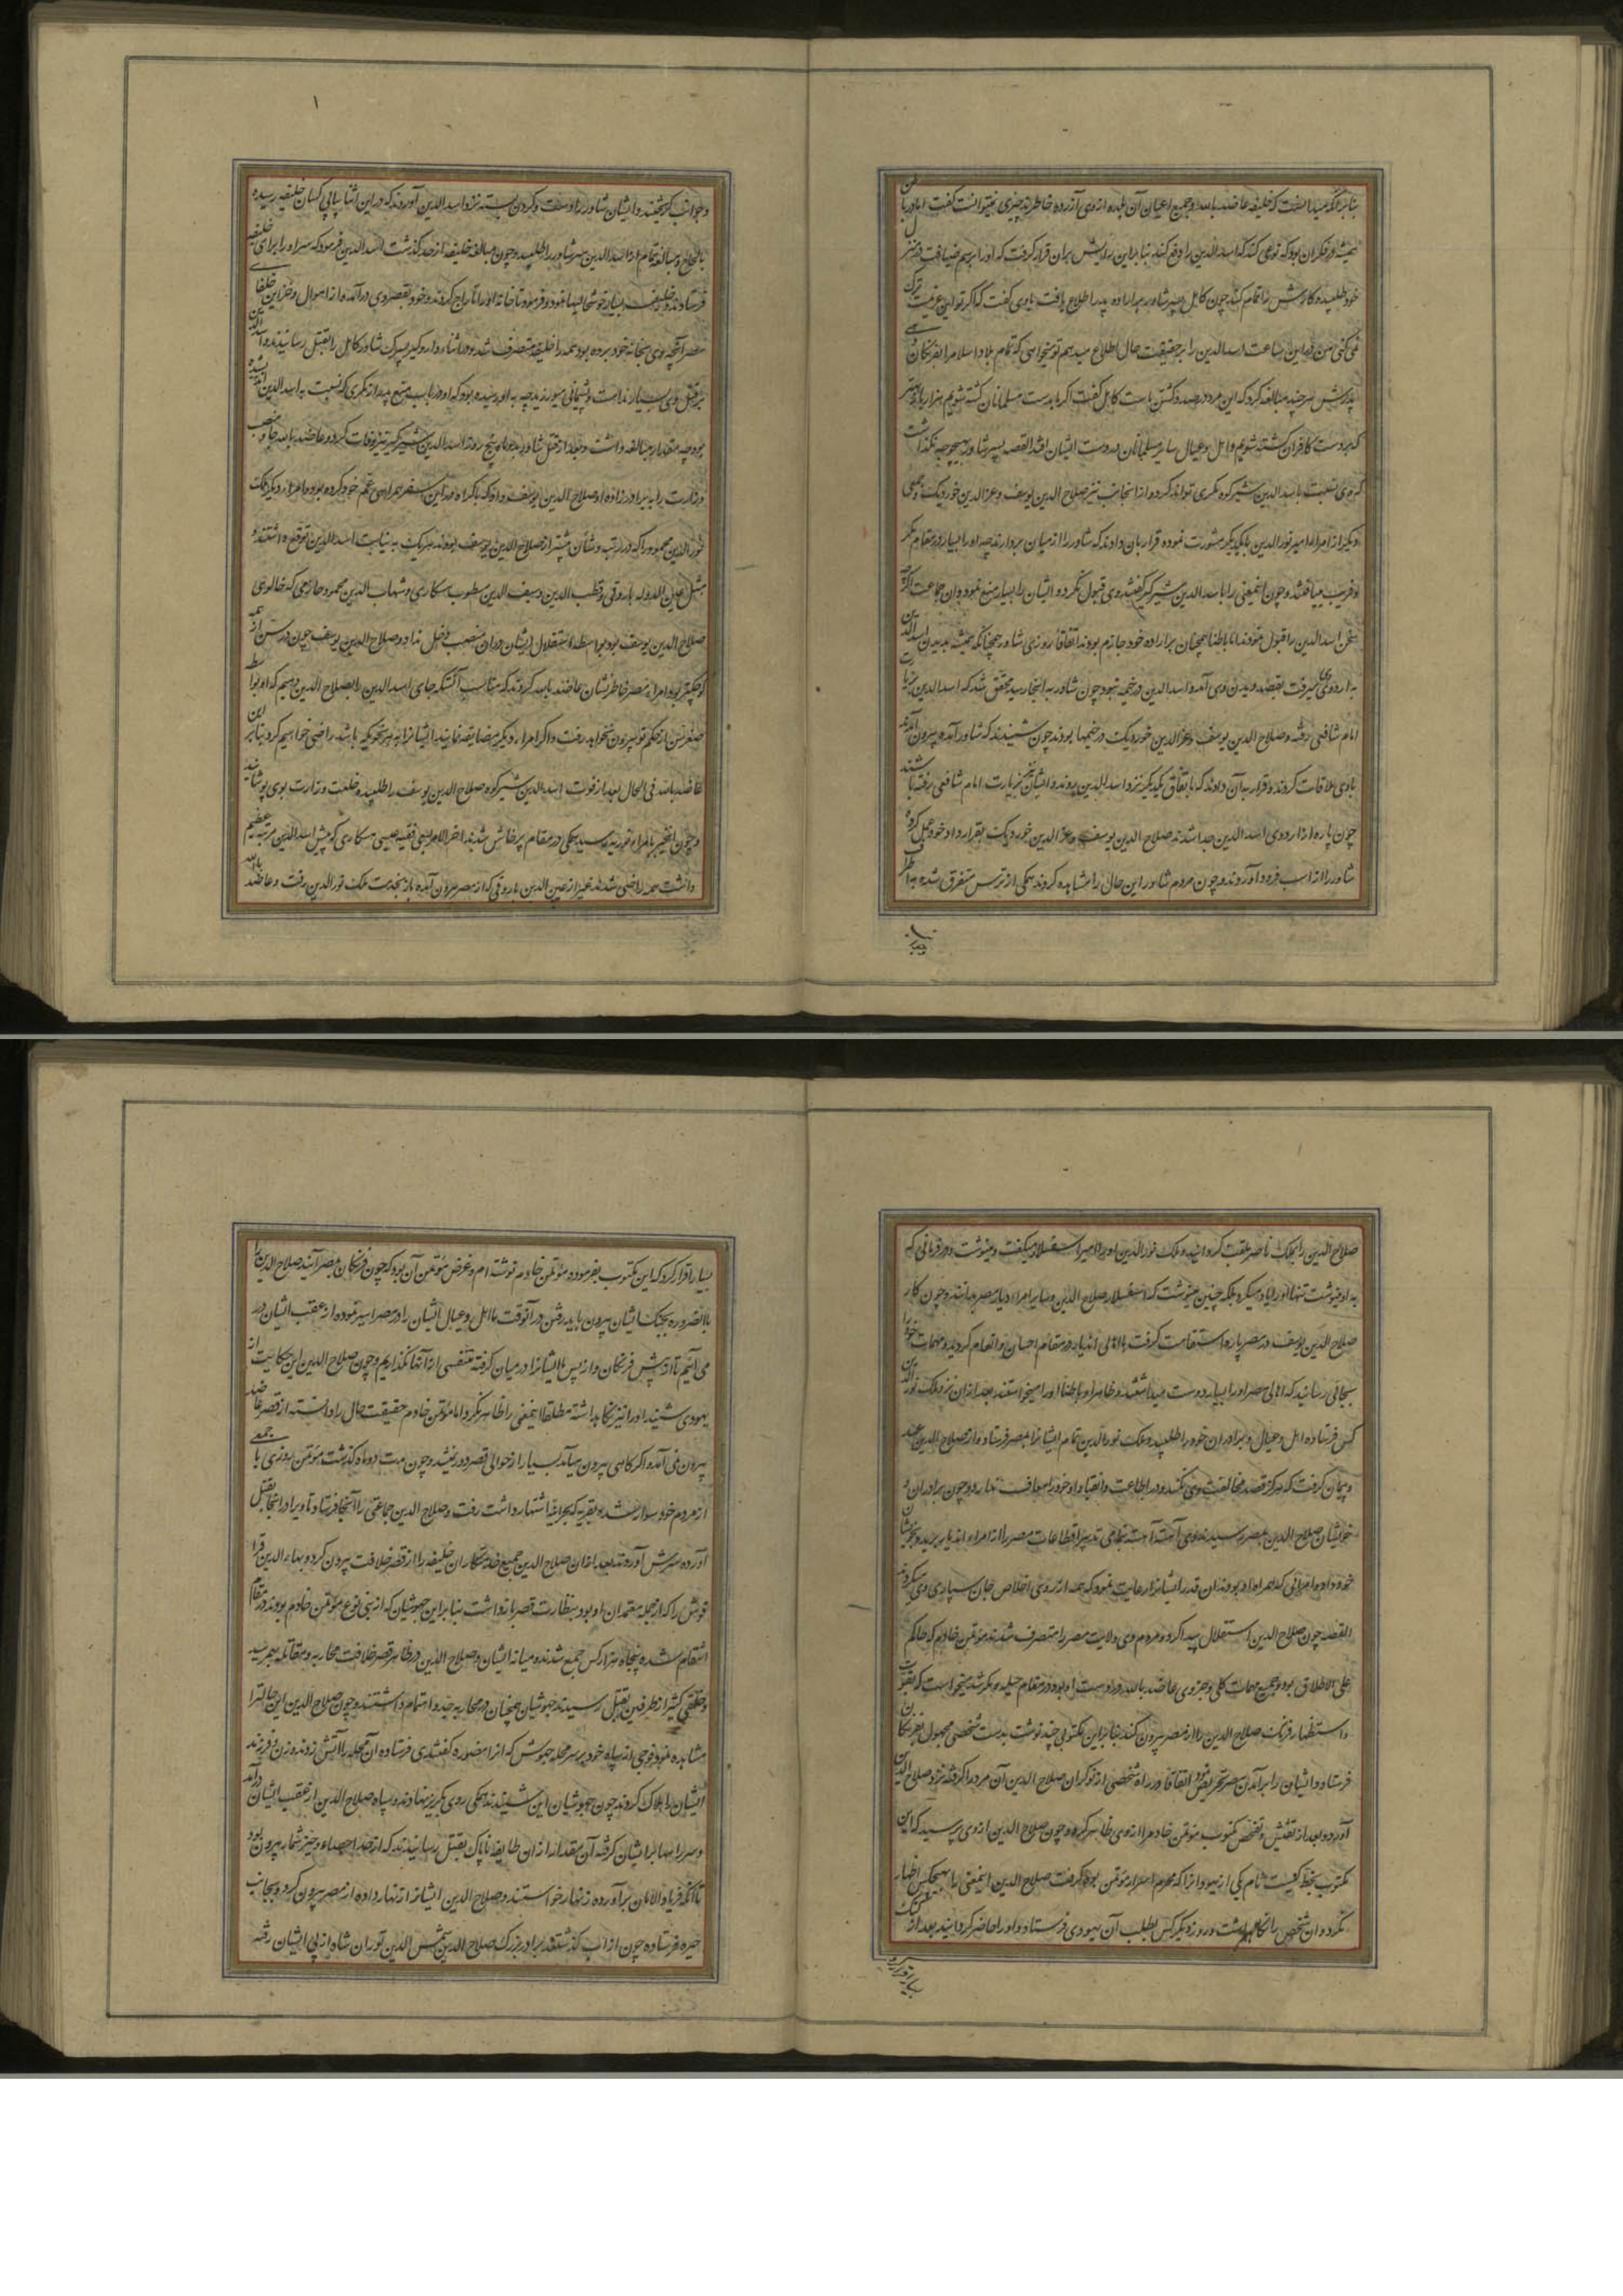 بنابرانکه میدانست که خلیفه عاضد بالله و جمیع اعیان آن بلده از وی آزرده خاطرند چیزی نمیتوانست گفت اما در باطن
همیشه در فکر آن بود که نوعی کند که اسدالدین را دفع کند بنابراین رایش بران قرار گرفت که او را برسم ضیافت در منزل
خود طلبیده کارش را تمام کند چون کامل پسر شاور بر اراده پدر اطلاع یافت با وی گفت که اگر تو این عزیمت ترک
نمی کنی من همین ساعت اسدالدین را بر حقیقت حال اطلاع میدهم تو میخواهی که تمام بلاد اسلام را بفرنکان دهی
پدرش هر چند مبالغه کرد که این مرد در صدد کشتن ماست کامل گفت اگر ما بدست مسلمانان کشته شویم هزار بار بهتر
که بر دست کافران کشته شویم و اهل و عیال سایر مسلمانان در دست ایشان افتد القصه پسر شاور بهیچوجه نگذاشت
که وی نسبت باسدالدین شیرکوه مکری تواند کرد و از انجانب نیز صلاح الدین یوسف و عزالدین خوردیک و جمعی
دیگر از امراء امیر نورالدین با یکدیگر مشورت نموده قرار بان دادند که شاور را از میان بردارند چه او را بسیار در مقام مکر
و فریب می یافتند و چون اینمعنی را با اسدالدین شیرکوه گفتند وی قبول نکرد و ایشان را بسیار منع نمود و ان جماعت اگرچه
سخن اسدالدین را قبول نمودند اما باطنا همچنان بر اراده خود جازم بودند اتفاقا روزی شاور همچنانکه همیشه بدیدن اسدالدین
به اردوی وی میرفت بقصد دیدن وی آمد و اسدالدین در خیمه نبود چون شاور به انجا رسید محقق شد که اسدالدین بزیارت
امام شافعی رفته و صلاح الدین یوسف و عزالدین خوردیک در خیمها بودند چون شنیدند که شاور آمده بیرون آمدند
با وی ملاقات کردند و قرار بآن دادند که باتفاق یکدیگر نزد اسدالدین روند و ایشان نیز بزیارت امام شافعی رفته باشند
چون پاره از اردوی اسدالدین جدا شدند صلاح الدین یوسف و عزالدین خوردیک بقرارداد خود عمل کرده
شاور را از اسب فرود آوردند و چون مردم شاور این حال را مشاهده کردند همکی از ترس متفرق شده به اطراف
و جوانب
و جوانب گریختند و ایشان شاور را دست و گردن بسته نزد اسدالدین آوردند که در این اثنا پیاپی کسان خلیفه رسیده
بالحاح و مبالغه تمام از اسدالدین سر شاور را طلبیدند چون مبالغه خلیفه از حد گذشت اسدالدین فرمود که سر او را برای خلیفه
فرستادند و خلیفه بسیار خوشحالیها نمود و فرمود تا خانه او را تاراج کردند و خود بقصر وی درآمد و از اموال و خزاین خلفای
مصر آنچه وی بخانه خود برده بود همه را خلیفه متصرف شد و در اثناء دار و گیر پسرک شاور کامل را بقتل رسانیدند و اسدالدین
بر قتل وی بسیار ندامت و پشیمانی میورزید چه به او رسیده بود که او در باب منع پدر از مکری که نسبت به اسدالدین اندیشیده
بود چه مقدار مبالغه داشت و بعد از قتل شاور بدو ماه و پنج روز اسدالدین شیرکوه نیز وفات کرد و عاضد بالله جا و منصب
وزارت را به برادرزاده او صلاح الدین یوسف داد که باکراه در این سفر همراهی عم خود کرده بود و امراء دیگر ملک
نورالدین محمود را که در رتبه و شأن بیشتر از صلاح الدین یوسف بودند هر یک به نیابت اسدالدین توقع داشتند
مثل عین الدوله یاروقی و قطب الدین و سیف الدین مطوب هکاری و شهاب الدین محمود حازمی که خالوی
صلاح الدین یوسف بود بواسطه استقلال ایشان در ان منصب دخل نداد و صلاح الدین یوسف چون در سن از همه
کوچکتر بود امراء مصر خاطرنشان عاضد بالله کردند که مناسب آنستکه جای اسدالدین را بصلاح الدین دهیم که او بواسطه
صغر سن از حکم تو بیرون نخواهد رفت و اگر امراء دیگر مضایقه نمایند ایشانرا به هر نحو که باشد راضی خواهیم کرد بنابراین
عاضد بالله فی الحال بعد از فوت اسدالدین شیرکوه صلاح الدین یوسف را طلبیده خلعت وزارت بوی پوشانید
و چون این خبر بامراء نوریه رسید همکی در مقام پرخاش شدند اخر الامر بسعی فقیه عیسی هکاری که پیش اسدالدین مرتبه عظیم
داشت همه راضی شدند غیر از عین الدین یاروقی که از مصر بیرون آمده باز بخدمت ملک نورالدین رفت و عاضد بالله
صلاح الدین را بملک ناصر ملقب گردانید و ملک نورالدین او را امیر اسفهسلار میگفت و مینوشت و هر فرمانی که
به او مینوشت تنها او را یاد نمیکرد بلکه چنین مینوشت که اسفهسلار صلاح الدین و سایر امراء دیار مصر بدانند و چون کار
صلاح الدین یوسف در مصر پاره استقامت گرفت با اهالی اندیار در مقام احسان و انعام گردید و مهمات خود را
بجائی رسانید که اهالی مصر او را بسیار دوست میداشتند و ظاهرا و باطنا او را میخواستند بعد از ان نزد ملک نورالدین
کس فرستاده اهل و عیال و برادران خود را طلبید و ملک نورالدین تمام ایشانرا بمصر فرستاد و از صلاح الدین عهد
و پیمان گرفت که هرگز قصد مخالفت وی نکند و در اطاعت و انقیاد او خود را معاف ندارد و چون برادران و
خویشان صلاح الدین بمصر رسیدند وی آهسته آهسته بنای تدبیر اقطاعات مصر را از امراء اندیار برید و بخویشان
خود داد و امرائی که همراه او بودند ان قدر ایشانرا رعایت نمود که همه از روی اخلاص جان سپاری وی میکردند
القصه چون صلاح الدین استقلال پیدا کرد و مردم وی ولایت مصر را متصرف شدند مؤتمن خادم که حاکم
علی الاطلاق بود و جمیع مهمات کلی و جزوی عاضد بالله در دست او بود در مقام حیله و مکر شد میخواست که بقوت
و استظهار فرنک صلاح الدین را از مصر بیرون کند بنابراین مکتوبی چند نوشت بدست شخصی مجهول بفرنکان
فرستاد و ایشان را بر آمدن مصر تحریض نمود اتفاقا در راه شخصی از نوکران صلاح الدین آن مرد را گرفته نزد صلاح الدین
آورد و بعد از تفتیش و تفحص مکتوب مؤتمن خادم را از وی ظاهر کرد و چون صلاح الدین از وی پرسید که این
مکتوب بخط کیست نام یکی از یهود را که محرم اسرار مؤتمن بود گرفت صلاح الدین اینمعنی را بهیچکس اظهار
نکرد و ان شخص را نگاهداشت و روز دیگر کس بطلب آن یهودی فرستاد و او را حاضر گردانید بعد از کتک
بسیار اقرار کرد
بسیار اقرار کرد که این مکتوب بفرموده مؤتمن خادم نوشته ام و غرض مؤتمن آن بود که چون فرنکان بمصر آیند صلاح الدین را
بالضروره بجنک ایشان بیرون باید رفتن در آنوقت ما اهل و عیال ایشان را در مصر اسیر نموده از عقب ایشان در
می آئیم تا از پیش فرنکان و از پس ما ایشانرا در میان گرفته متنفسی از آنها نگذاریم و چون صلاح الدین این حکایت از
یهودی شنید او را نیز نگاهداشته مطلقا اینمعنی را ظاهر نکرد اما مؤتمن خادم حقیقت حال را دانسته از قصر عاضد
بیرون نمی آمد و اگر گاهی بیرون میآمد بسیار از حوالی قصر دور نمیشد و چون مدت دو ماه گذشت مؤتمن روزی با جمعی
از مردم خود سوار شده بقریه که بخرابه اشتهار داشت رفت و صلاح الدین جماعتی را آنجا فرستاد تا ویرا در انجا بقتل
آورده سرش آوردند بعد از ان صلاح الدین جمیع خدمتکاران خلیفه را از قصر خلافت بیرون کرد و بهاءالدین قرا
قوش را که از جمله معتمدان او بود بنظارت قصر بازداشت بنابراین حبوشیان که از بنی نوع مؤتمن خادم بودند در مقام
انتقام شده پنجاه هزار کس جمع شدند و میانه ایشان و صلاح الدین در ظاهر قصر خلافت محاربه و مقاتله بهم رسید
و خلقی کثیر از طرفین بقتل رسیدند حبوشیان همچنان در محاربه جد و اهتمام داشتند و چون صلاح الدین این حالترا
مشاهده نمود فوجی از سپاه خود بر سر محله حبوش که انرا منصوره گفتندی فرستاده آن محله را آتش زدند و زن و فرزند
ایشان را هلاک کردند چون حبوشیان این شنیدند همکی روی بگریز نهادند و سپاه صلاح الدین از عقب ایشان درآمد
و سر راهها بر ایشان گرفته آن مقدار از ان طایفه ناپاک بقتل رسانیدند که از حد احصاء و حیز شمار بیرون بود
تا آنکه فریاد الامان برآورده زنهار خواستند و صلاح الدین ایشانرا زنهار داده از مصر بیرون کرد و بجانب
جیزه فرستاده چون از اب گذشتند برادر بزرک صلاح الدین شمس الدین توران شاه از پی ایشان رفته